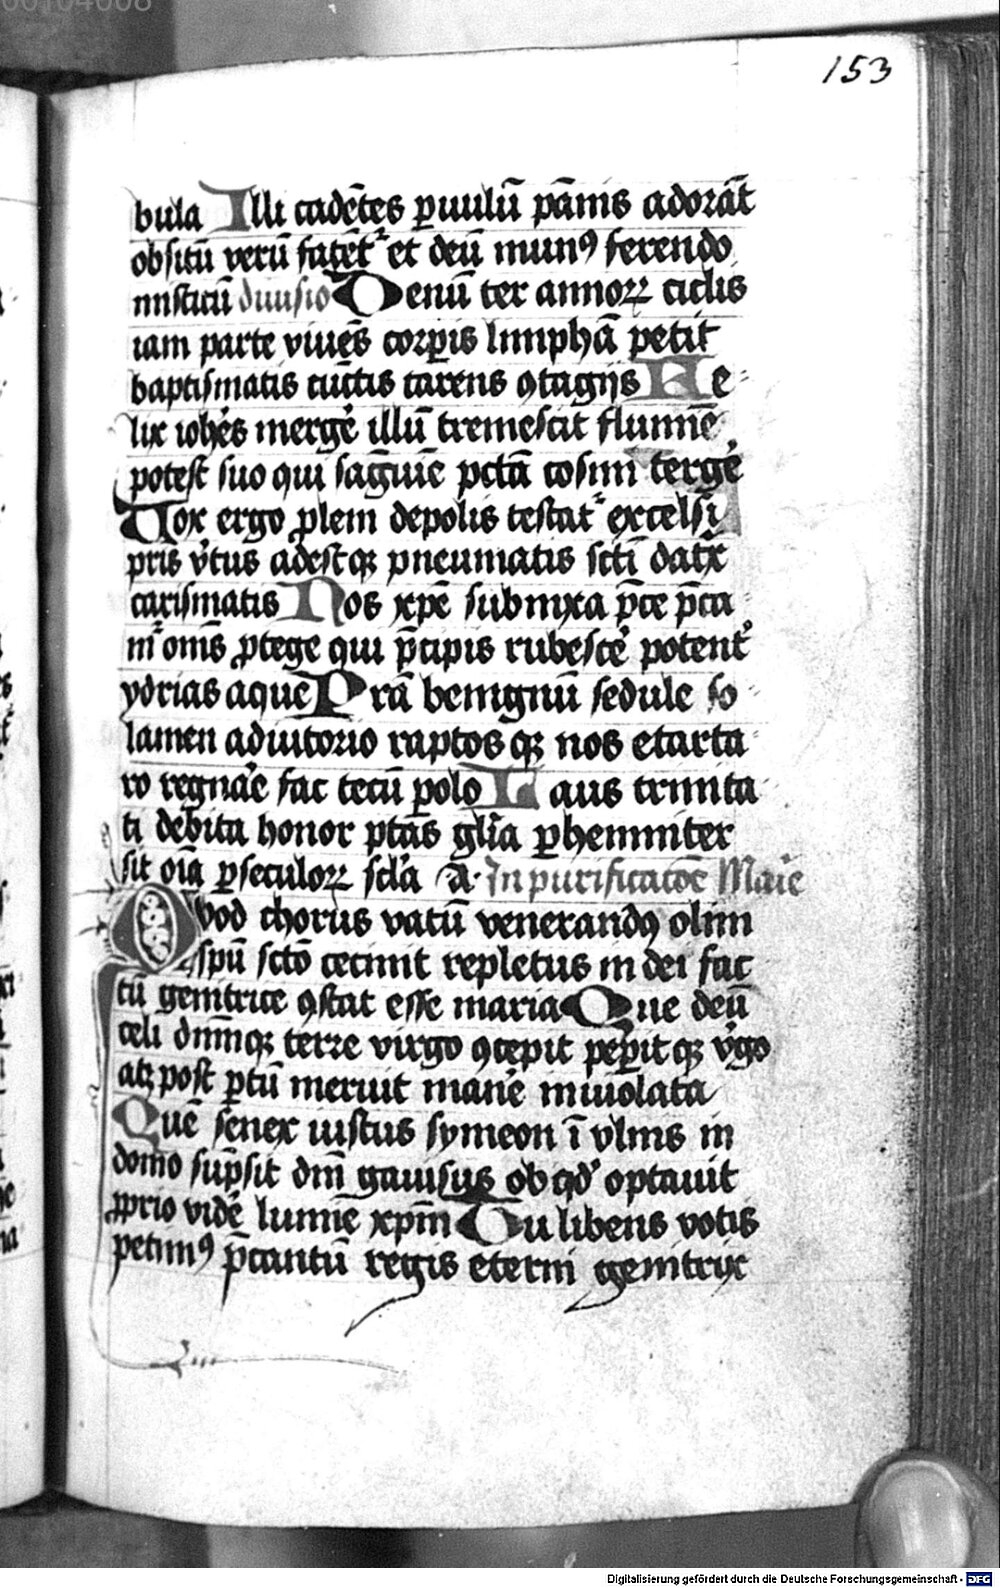 153
bula Illi cadētes ꝑuulū pānis adorāt
obsitū verū fatēt᷑ et deū munꝰ ferendo
misticū diuisio Denū ter annoꝝ ciclis
iam parte viuēs corꝑis limphā petit
baptismatis cūctis carens ꝯtagijs Fe
lix ioh̄es merge᷑ illū tremescit flumīe
potest suo qui sāguīe pctā cosmi terge᷑
Uox ergo ꝓlem de polis testat᷑ excelsi
pris v̄tus adestqꝫ pneumatis scti dat᷑x
carismatis Nos xp̄e subnixa p̄ce p̄ca
m᷑ om̄s ꝓtege qui p̄cipis rubesce᷑ potent᷑
ydrias aque Prā benignū sedule so
lamen adiutorio raptosqꝫ nos etarta
ro regnāe fac tecū polo Laus trinita
ti debita honor ptās glīa ꝑhenniter
sit oīa ꝑ seculoꝝ scl̄a A· In purificatōe Maīe
Quod chorus vatū venerandꝰ olim
spū scto cecinit repletus in dei fac
tū genitrice ꝯstat esse maria Que deū
celi dnm̄qꝫ terre virgo ꝯcepit peꝑitqꝫ v̄go
atꝫ post ꝑtū meruit mane᷑ inuiolata
Quē senex iustus symeon ī vlnis in
domo sūpsit dnī gauisus ob qd᷑ optauit
ꝓprio vide᷑ lumīe xp̄m Tu libens votis
petimꝰ p̄cantū regis eterni genitrix
Digitalisierung gefördert durch die Deutsche Forschungsgemeinschaft - DFG